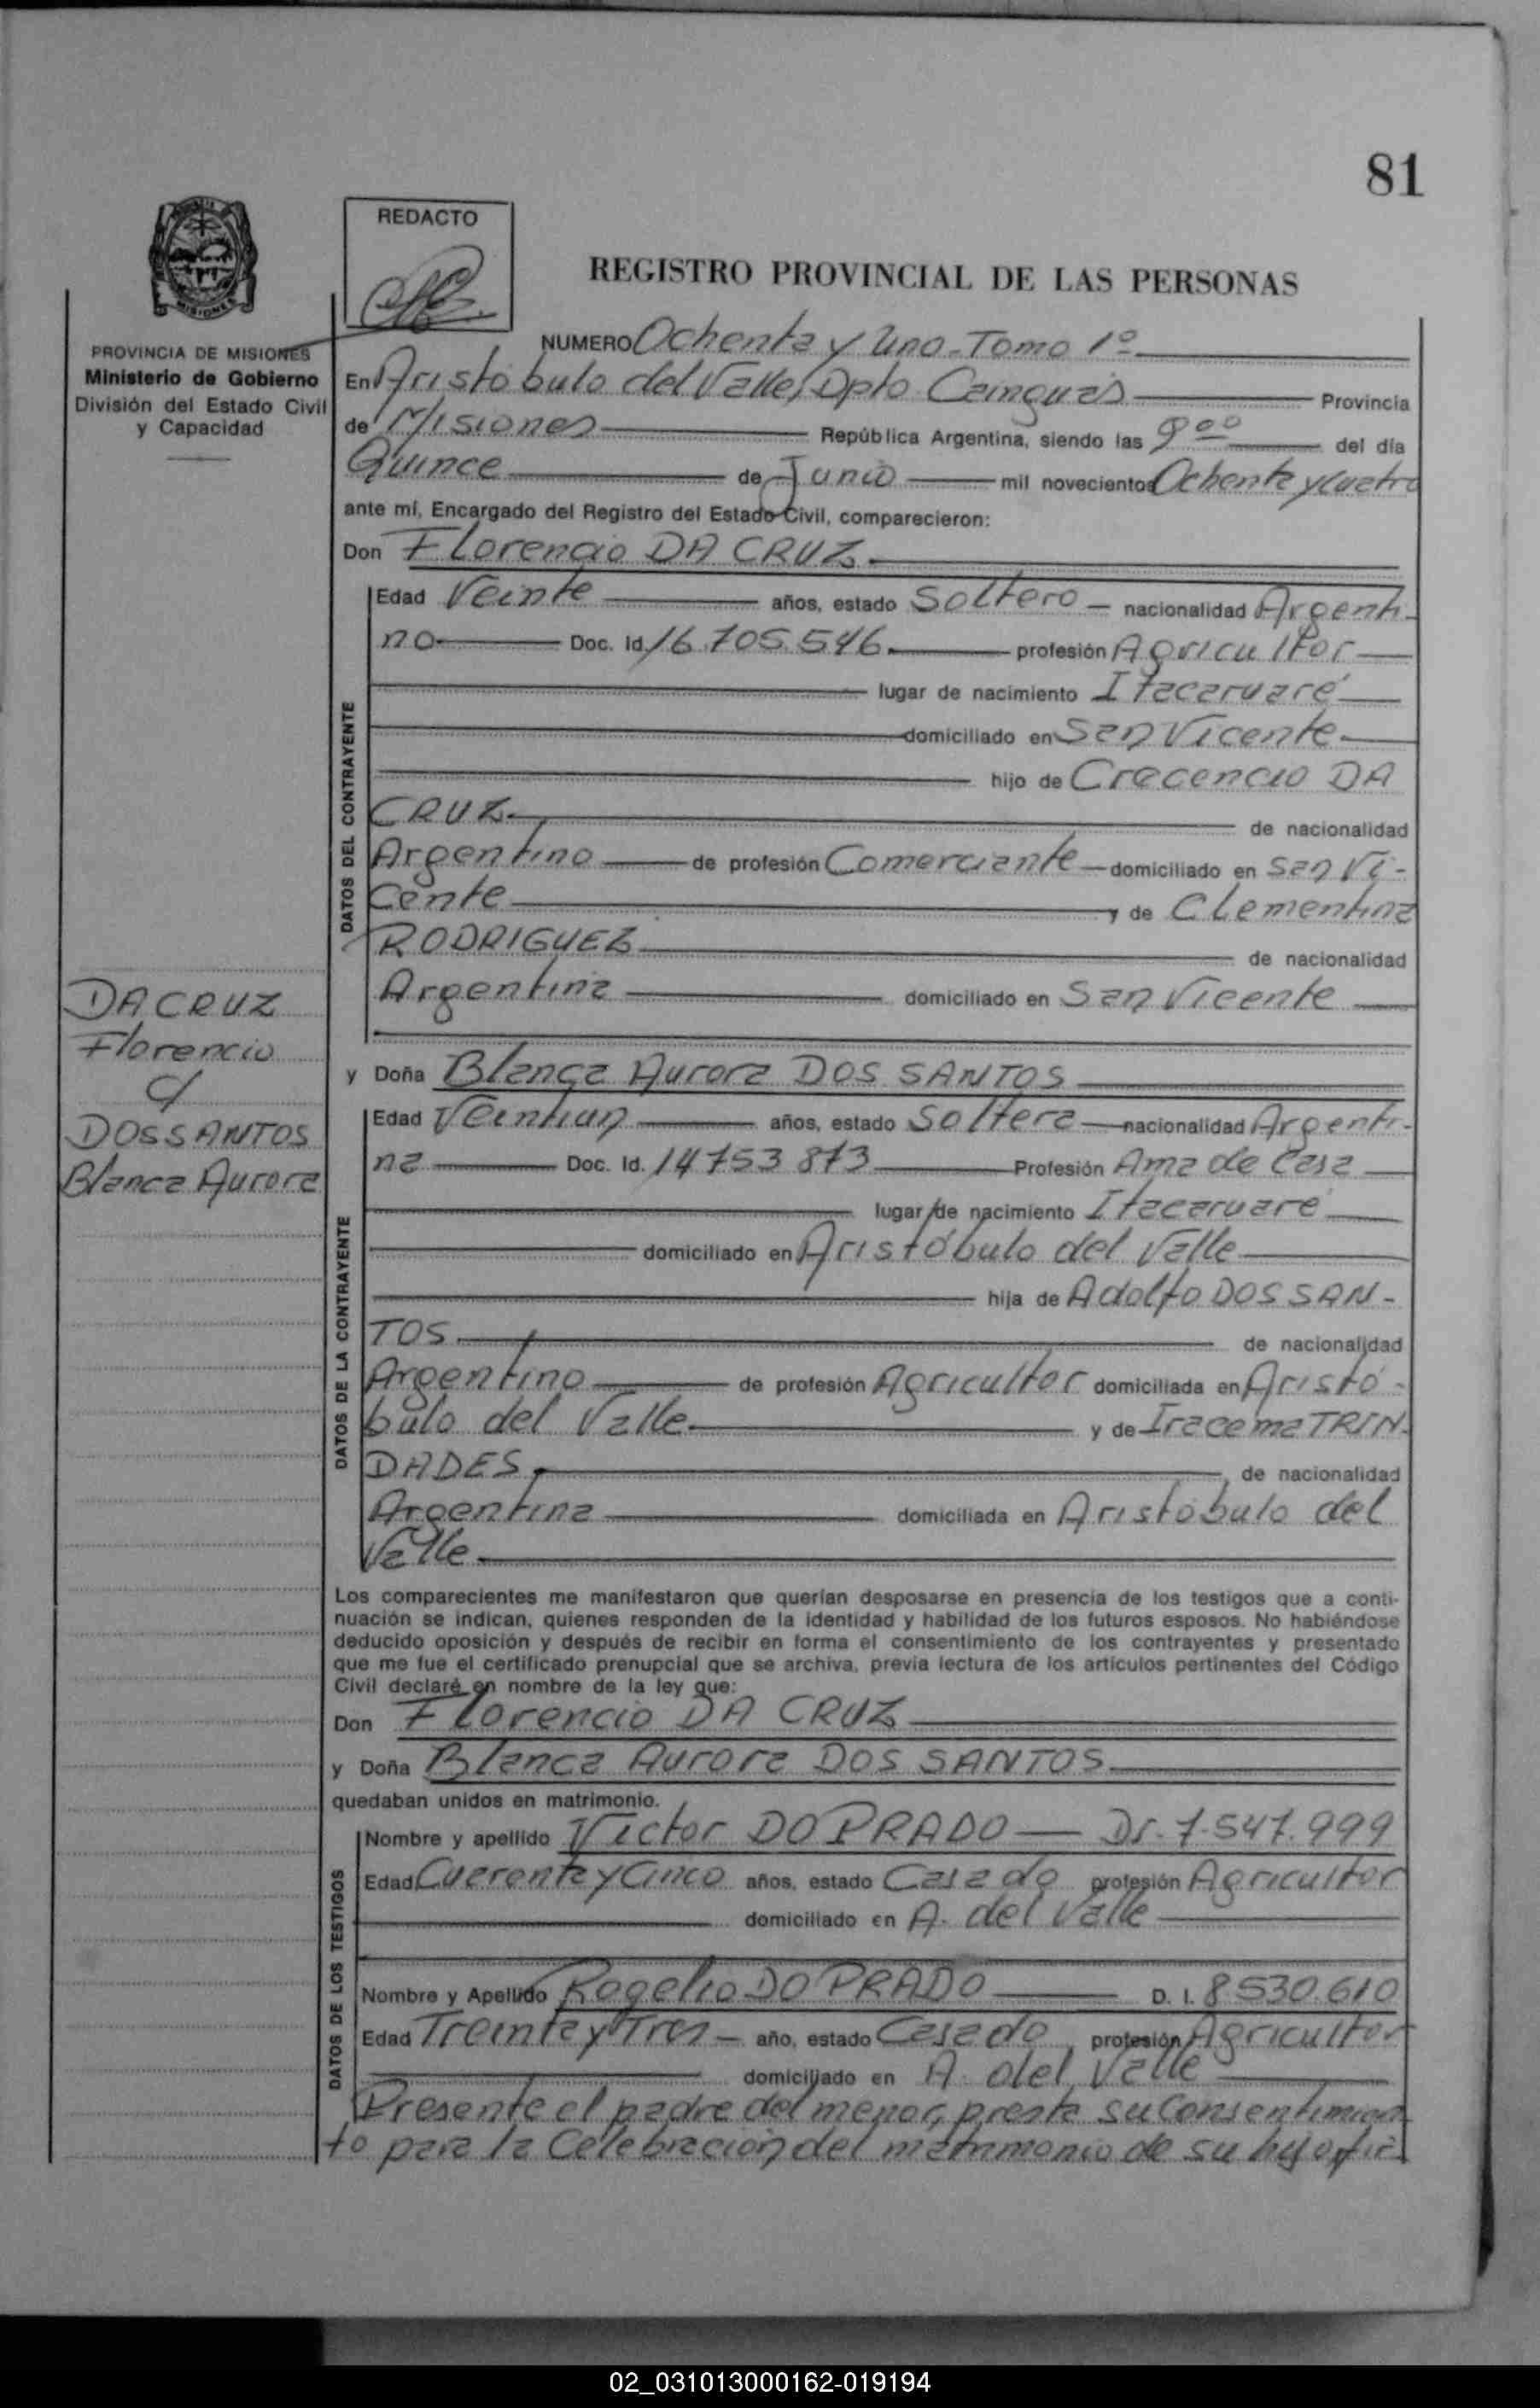 81
REDACTO
REGISTRO PROVINCIAL DE LAS PERSONAS
MISIONES
PROVINCIA DE MISIONES
Ministerio de Gobierno
División del Estado Civil
y Capacidad
NUMERO Ochenta y Uno - Tomo 1º
En Aristóbulo del Valle, Dpto Cainguás Provincia
de Misiones República Argentina, siendo las 9 00 del día
Quince de Junio mil novecientos Ochenta y cuatro
ante mí, Encargado del Registro del Estado Civil, comparecieron:
Don Florencio DA CRUZ
DATOS DEL CONTRAYENTE
Edad Veinte años, estado Soltero nacionalidad Argenti-
no Doc. Id. 16.705.546 profesión Agricultor
lugar de nacimiento Itacaruaré
domiciliado en San Vicente
hijo de Crecencio DA
CRUZ de nacionalidad
Argentino de profesión Comerciante domiciliado en San Vi-
cente y de Clementina
RODRIGUEZ de nacionalidad
Argentina domiciliado en San Vicente
DA CRUZ
Florencio
c/
DOS SANTOS
Blanca Aurora
y Doña Blanca Aurora DOS SANTOS
DATOS DE LA CONTRAYENTE
Edad Veintiun años, estado Soltera nacionalidad Argenti-
na Doc. Id. 14753 873 Profesión Ama de Casa
lugar de nacimiento Itacaruaré
domiciliado en Aristóbulo del Valle
hija de Adolfo DOS SAN-
TOS de nacionalidad
Argentino de profesión Agricultor domiciliada en Aristó-
bulo del Valle y de Iracema TRIN-
DADES de nacionalidad
Argentina domiciliada en Aristóbulo del
Valle
Los comparecientes me manifestaron que querían desposarse en presencia de los testigos que a conti-
nuación se indican, quienes responden de la identidad y habilidad de los futuros esposos. No habiéndose
deducido oposición y después de recibir en forma el consentimiento de los contrayentes y presentado
que me fue el certificado prenupcial que se archiva, previa lectura de los artículos pertinentes del Código
Civil declaré en nombre de la ley que:
Don Florencio DA CRUZ
y Doña Blanca Aurora DOS SANTOS
quedaban unidos en matrimonio.
DATOS DE LOS TESTIGOS
Nombre y apellido Victor DO PRADO DI. 7.547.999
Edad Cuarenta y Cinco años, estado Casado profesión Agricultor
domiciliado en A. del Valle
Nombre y Apellido Rogelio DO PRADO D. I. 8530.610
Edad Treinta y Tres año, estado Casado profesión Agricultor
domiciliado en A. del Valle
Presente el padre del menor, presta su Consentimien
to para la Celebración del matrimonio de su hijo, fir
02_031013000162-019194